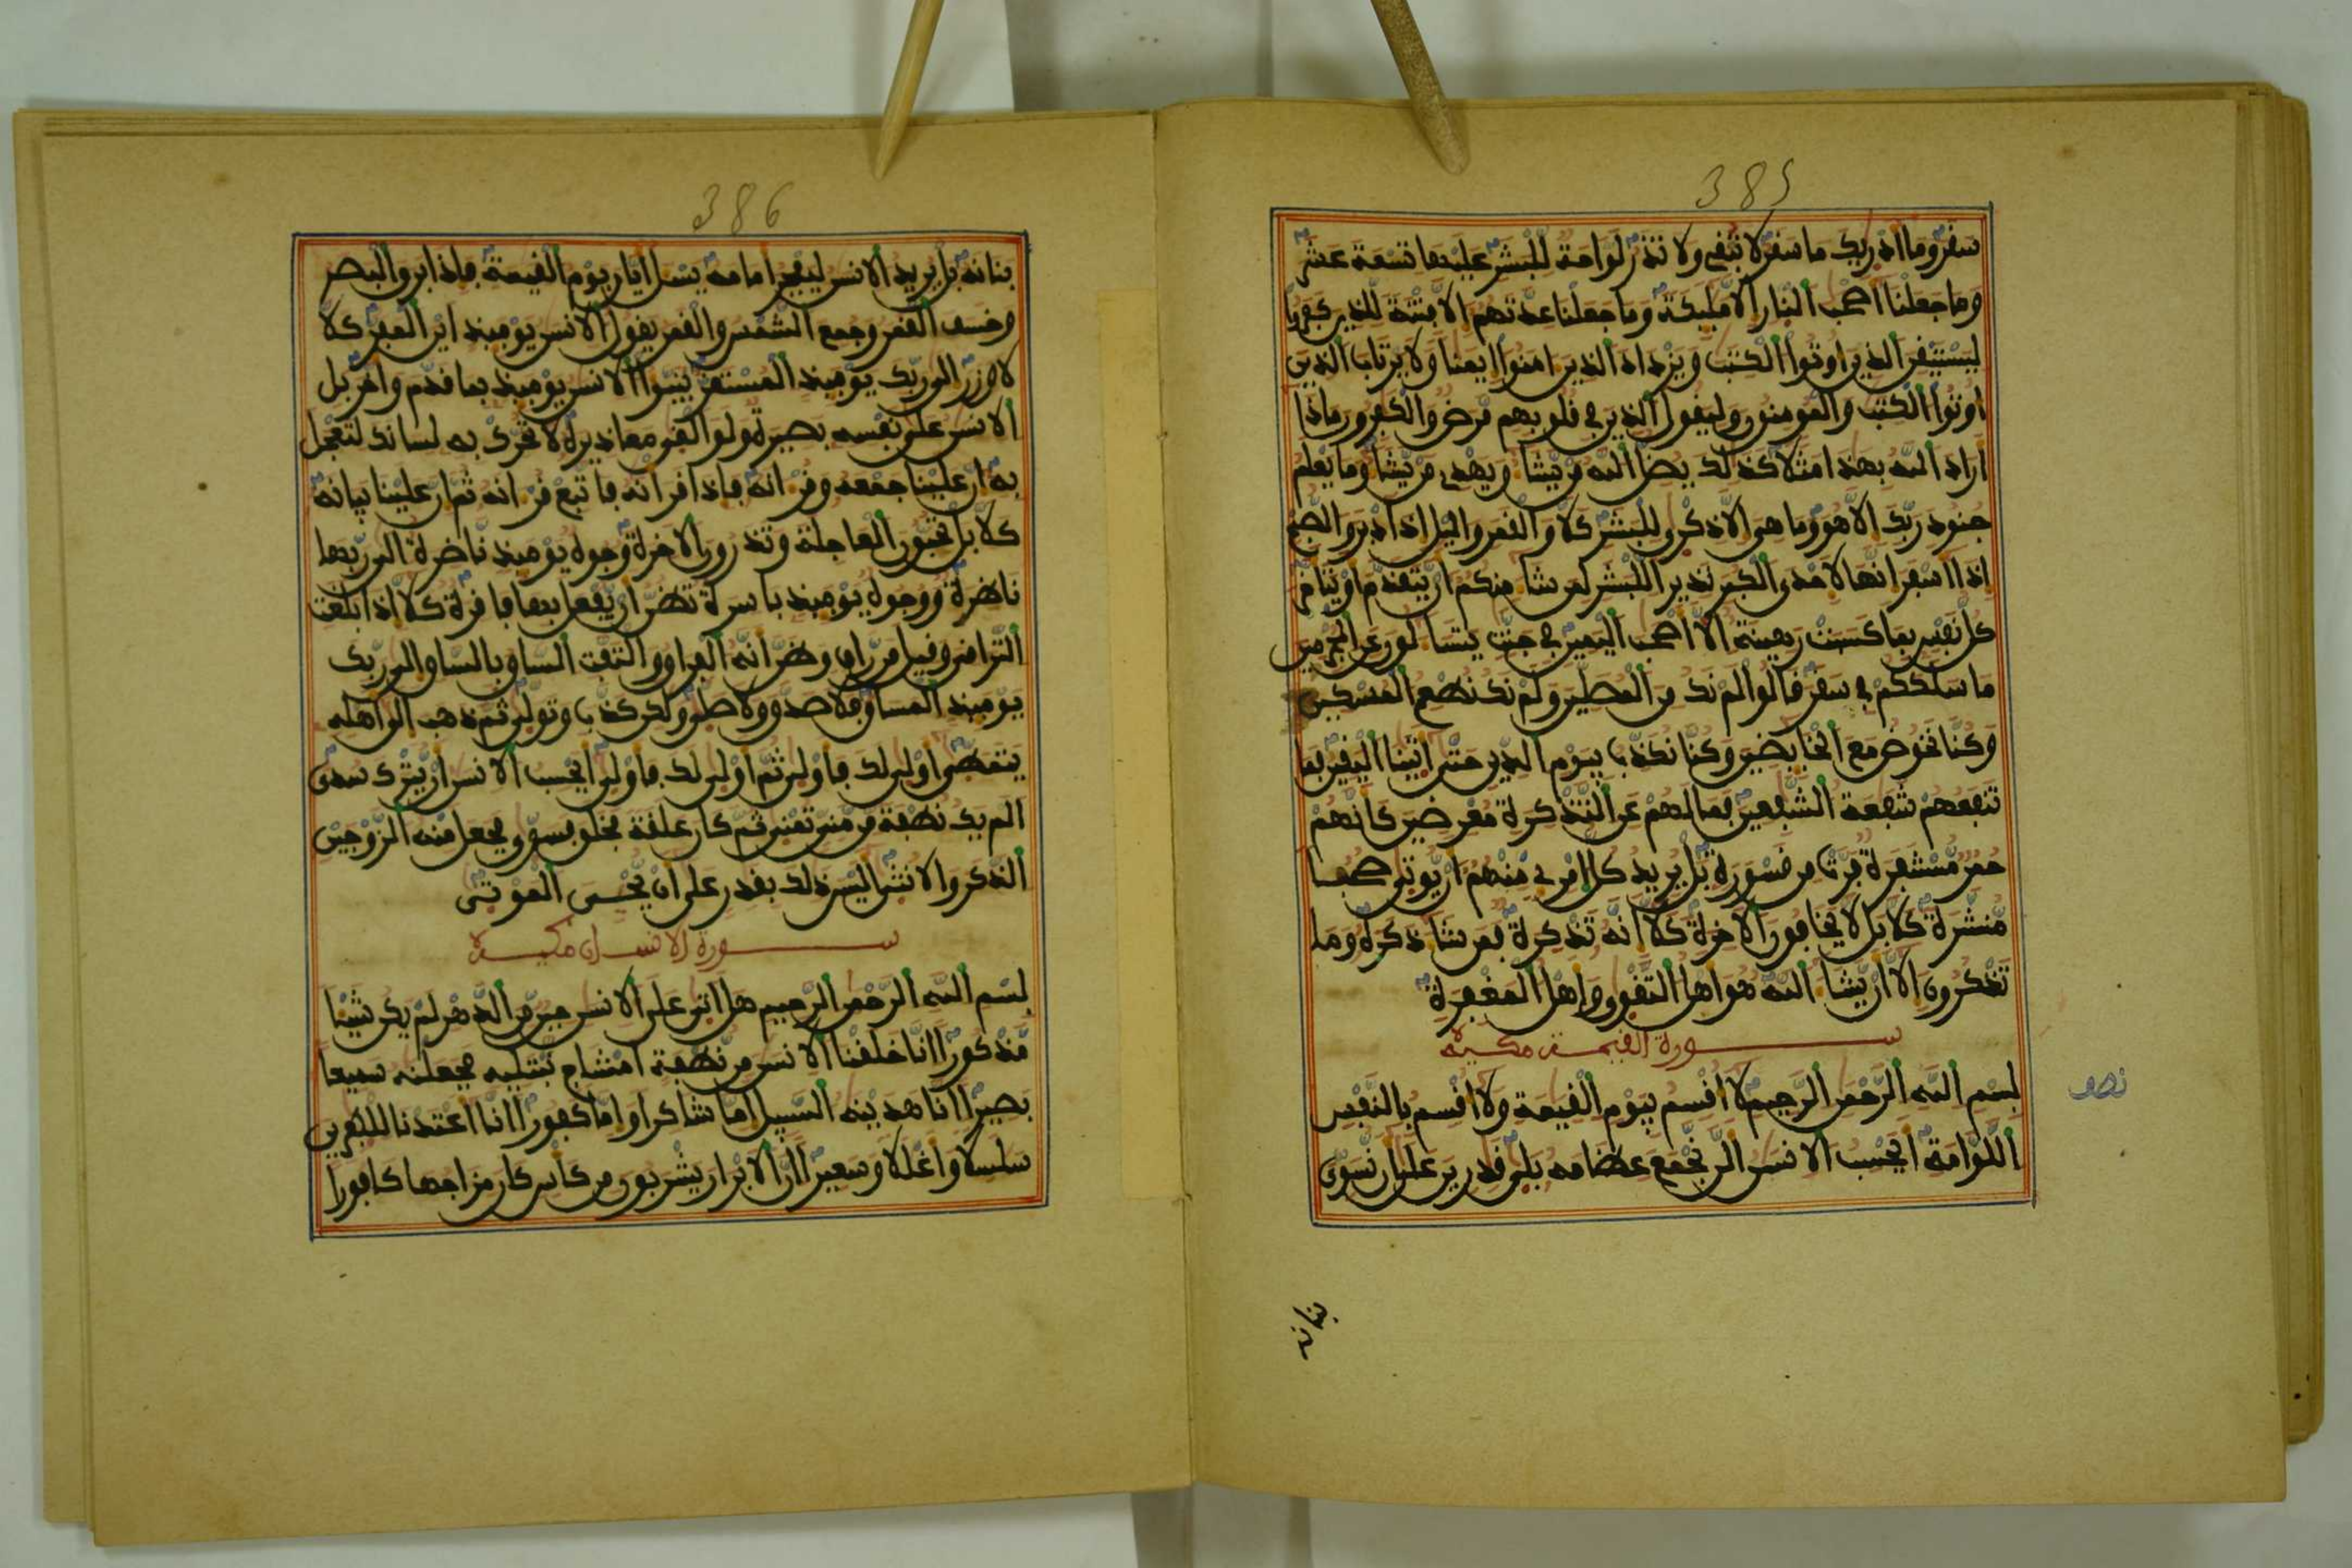 385
سفر وما ادريك ما سفر لا تبقي ولا تذر لواحة للبشر عليها تسعة عشر
وما جعلنا اصحب النار الا مليكة وما جعلنا عدتهم الا فتنة للذين كفروا
ليستيفن الذين اوتوا الكتب ويزداد الذين امنوا ايمنا ولا يرتاب الذين
اوتوا الكتب والمومنون وليفول الذين في فلوبهم مرض والكفرون ماذا
اراد الله بهذا مثلا كذلك يضل الله من يشا ويهدي من يشا وما يعلم
جنود ربك الا هو وما هي الا ذكرى للبشر كلا والفمر واليل اذ ادبر والصبح
اذا اسفر انها لاحدى الكبر نذيرا للبشر لمن شا منكم ان يتفدم او يتاخر
كل نفس بما كسبت رهينة الا اصحب اليمين في جنت يتسا لون عن المجرمين
ما سلككم في سفر فالوا لم نك من المصلين ولم نك نطعم المسكين
وكنا نخوض مع الخايضين وكنا نكذب بيوم الدين حتى اتينا اليفين فما
تنفعهم شفعة الشفعين فما لهم عن التذكرة معرضين كانهم
حمر مستنفرة فرت من فسورة بل يريد كل امرى منهم ان يوتى صحفا
منشرة كلا بل لا يخافون الاخرة كلا انه تذكرة فمن شا ذكره وما
تذكرون الا ان يشا الله هو اهل التفوى واهل المغفرة
سورة الفيمة مكية
بسم الله الرحمن الرحيم لا افسم بيوم الفيمة ولا افسم بالنفس
اللوامة ايحسب الانسن الن نجمع عظامه بلى فدرين على ان نسوي
نصف
386
بنانه بل يريد الانسن ليفجر امامه يسل ايان يوم الفيمة فاذا برق البصر
وخسف الفمر وجمع الشمس والفمر يفول الانسن يوميذ اين المفر كلا
لا وزر الى ربك يوميذ المستفر ينبوا الانسن يوميذ بما فدم واخر بل
الانسن على نفسه بصيرة ولو الفى معاذيره لا تحرك به لسانك لتعجل
به ان علينا جمعه وفرانه فاذا فرانه فاتبع فرانه ثم ان علينا بيانه
كلا بل تحبون العاجلة وتذرون الاخرة وجوه يوميذ ناضرة الى ربها
ناظرة ووجوه يوميذ باسرة تظن ان يفعل بها فافرة كلا اذا بلغت
التراقي وفيل من راق وظن انه الفراق والتفت الساق بالساق الى ربك
يوميذ المساق فلا صدق ولا صلى ولكن كذب وتولى ثم ذهب الى اهله
يتمطى اولى لك فاولى ثم اولى لك فاولى ايحسب الانسن ان يترك سدى
الم يك نطفة من مني تمنى ثم كان علفة فخلق فسوى فجعل منه الزوجين
الذكر والانثى اليس ذلك بفدر على ان يحيي الموتى
سورة الانسان مكية
بسم الله الرحمن الرحيم هل اتى على الانسن حين من الدهر لم يكن شيا
مذكورا انا خلفنا الانسن من نطفة امشاج نبتليه فجعلنه سميعا
بصيرا انا هدينه السبيل اما شاكرا واما كفورا انا اعتدنا للكفرين
سلسلا واغللا وسعيرا ان الابرار يشربون من كاس كان مزاجها كافورا